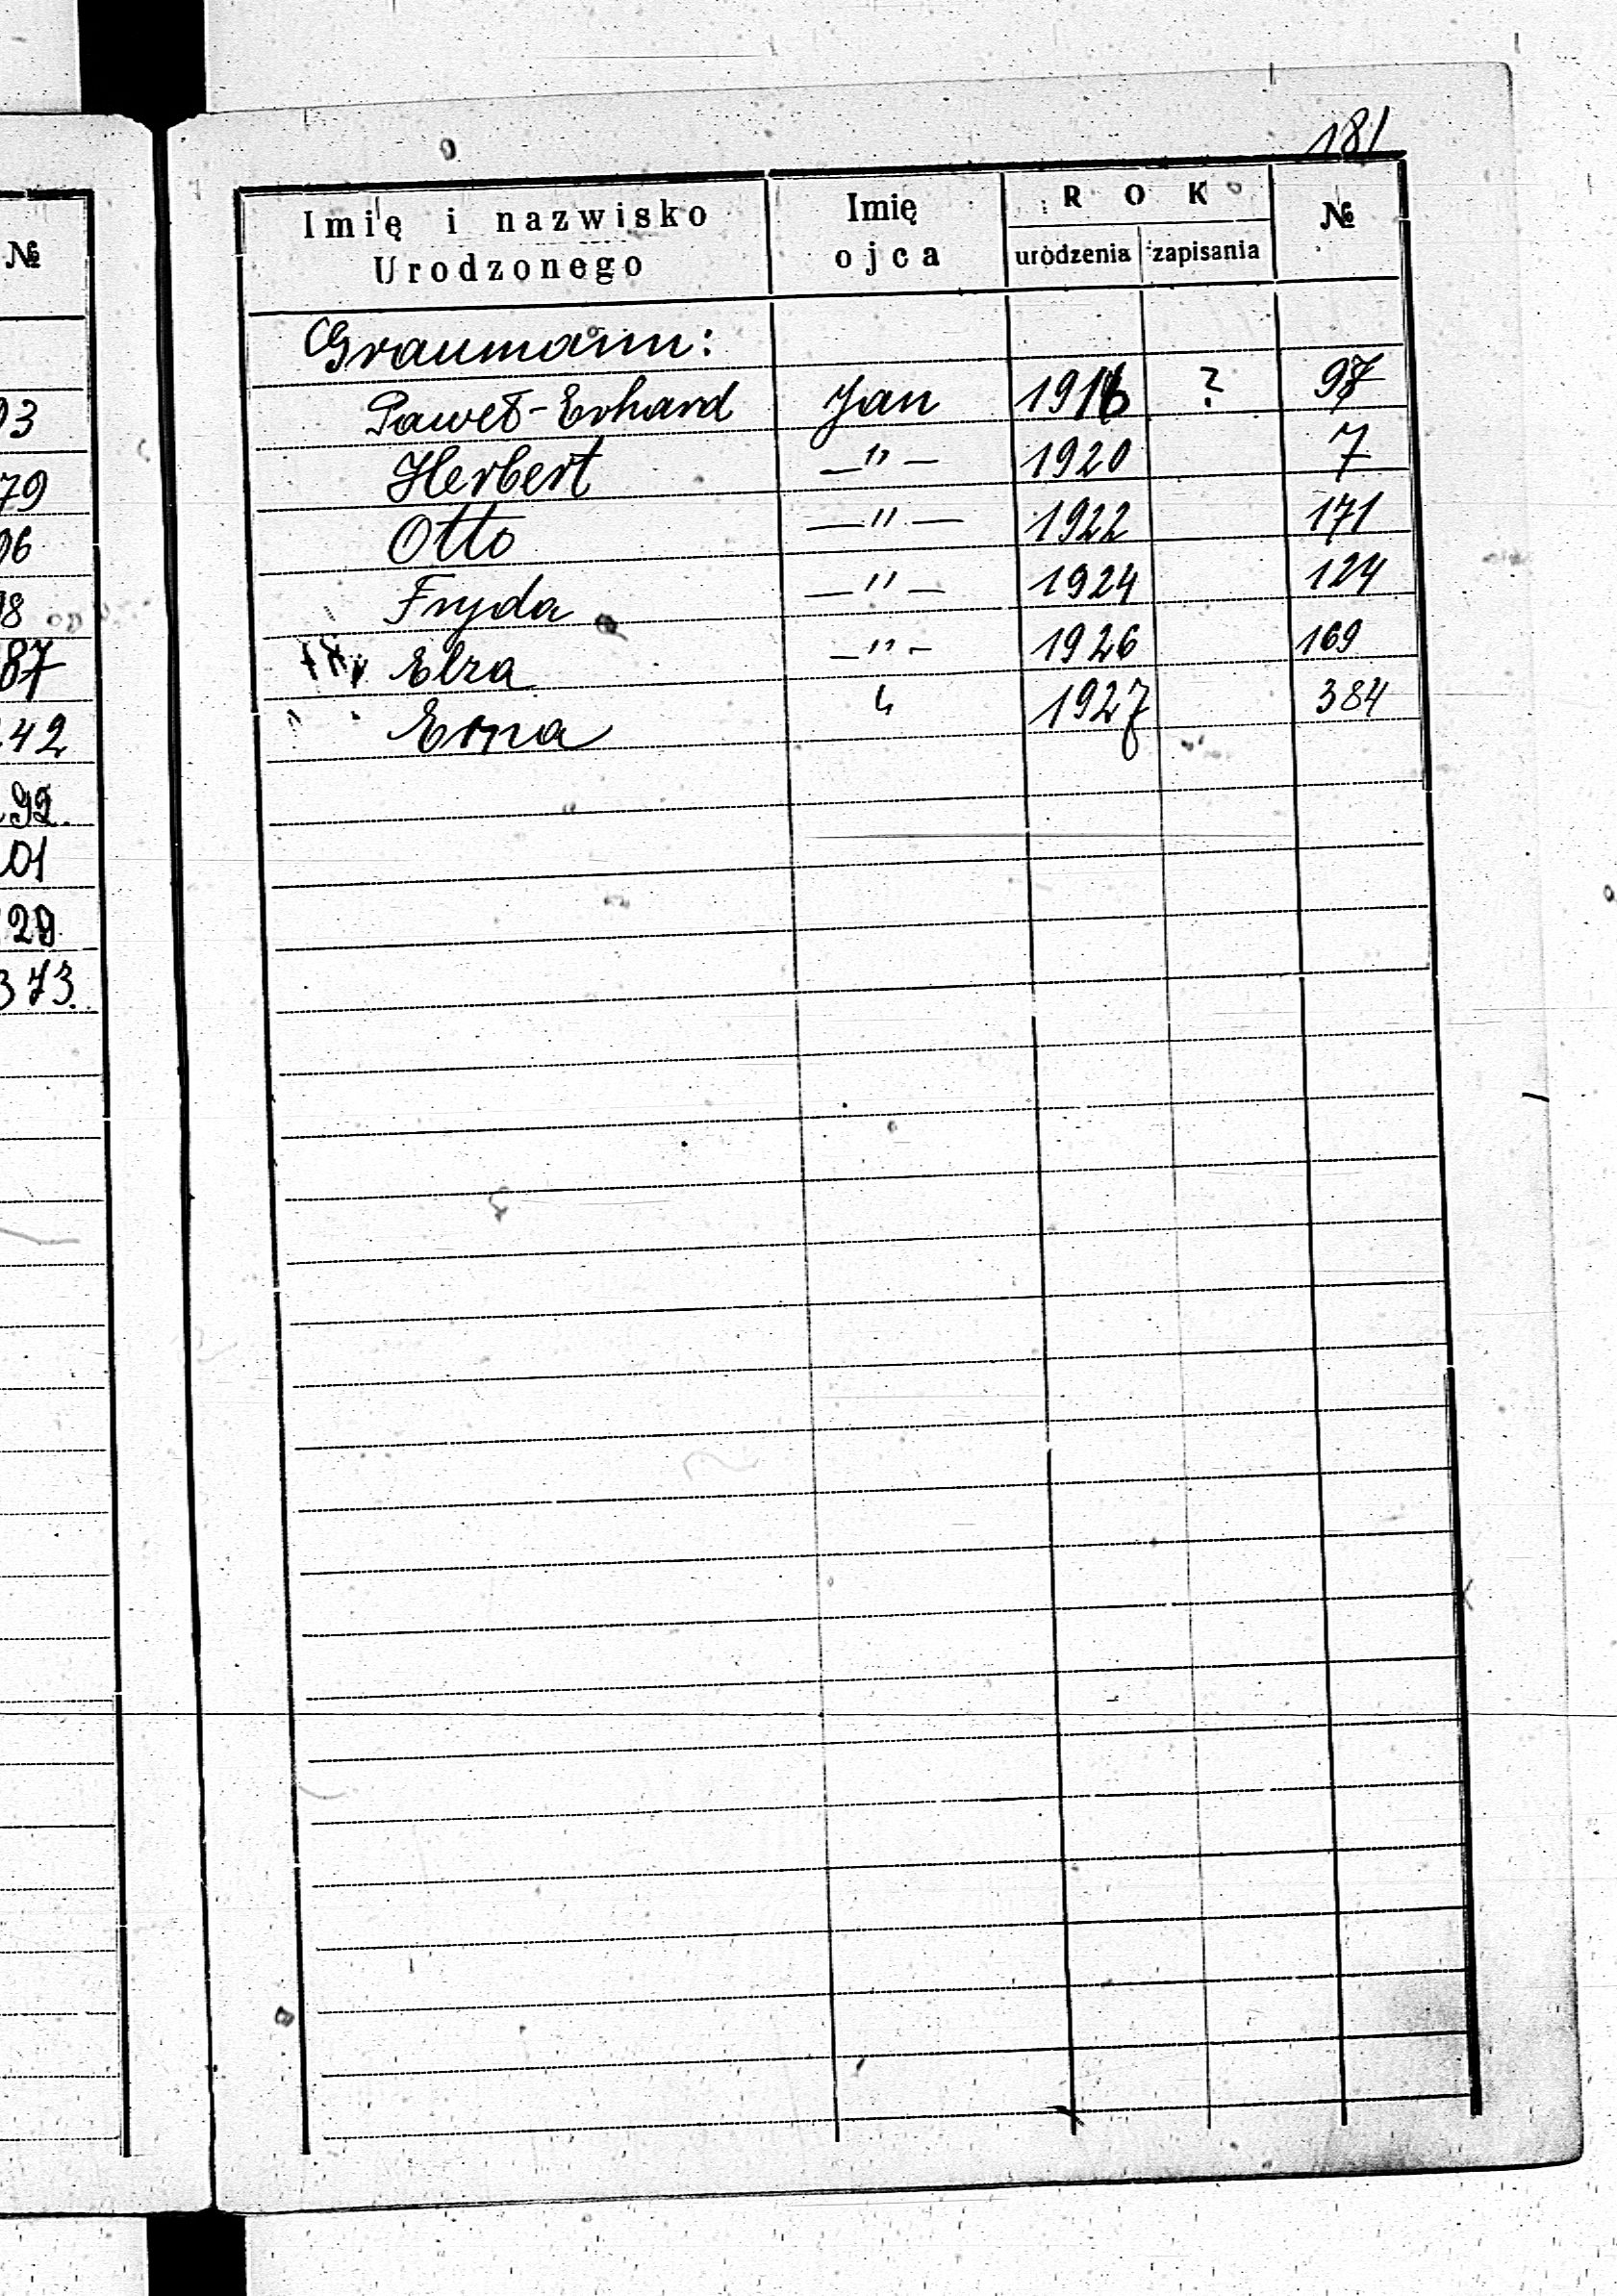 181
Imię i nazwisko Urodzonego | Imię ojca | ROK urodzenia | zapisania | №
Graumann:
Paweł-Erhard | Jan | 1916 | ? | 97
Herbert | —"— | 1920 | 7
Otto | —"— | 1922 | 171
Fryda | —"— | 1924 | 124
Elza | —"— | 1926 | 169
Erna | " | 1927 | 384
№
93
79
06
18
87
42
92.
01
29
373.